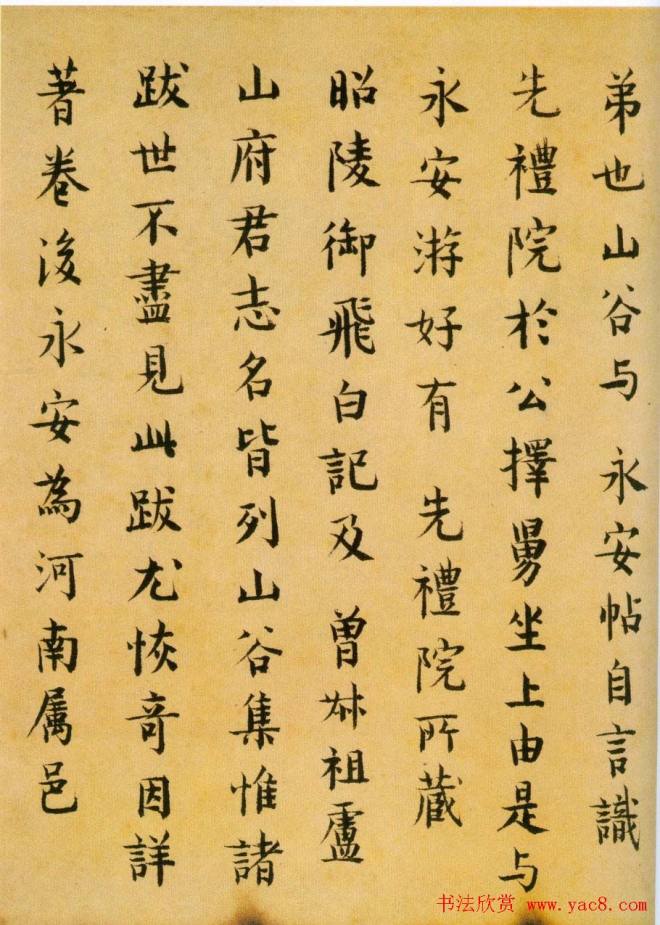 弟也山谷与 永安帖自言識
先禮院於公擇舅坐上由是与
永安游好有 先禮院所藏
昭陵御飛白記及 曾叔祖盧
山府君志名皆列山谷集惟諸
跋世不盡見此跋尤恢奇因詳
著卷後永安為河南属邑
书法欣赏 www.yac8.com